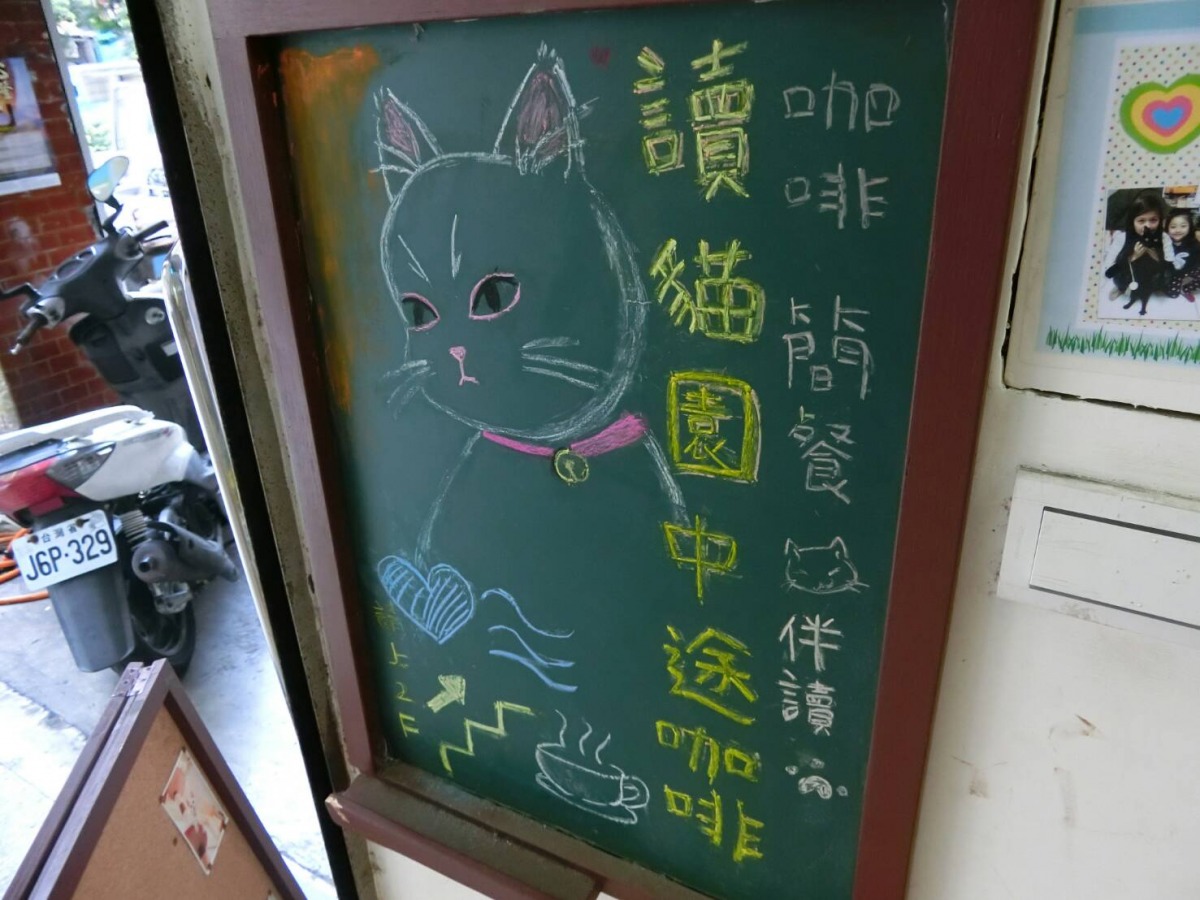 咖啡 簡餐 伴讀
讀貓園中途咖啡
請上2F
台灣省
J6P·329